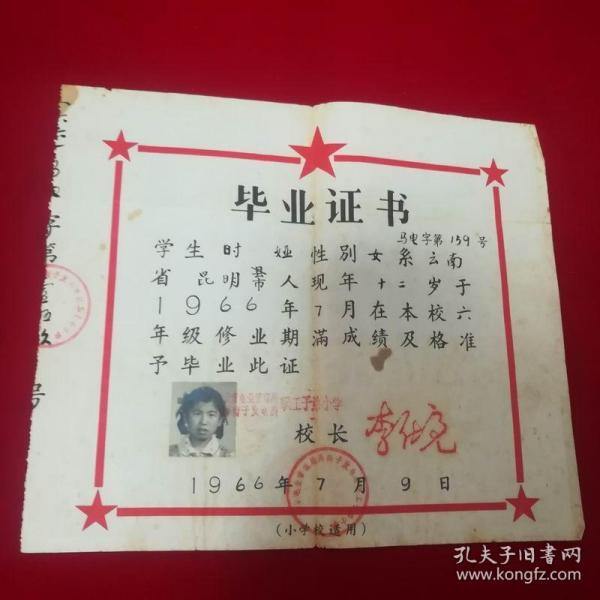 毕业证书
马电字第159号
学生时娅性别女系云南
省昆明县市人现年十二岁于
1966年7月在本校六
年级修业期满成绩及格准
予毕业此证
职工子弟小学
校长
1966年7月9日
(小学校适用)
字第
号
孔夫子旧书网
www.kongfz.com